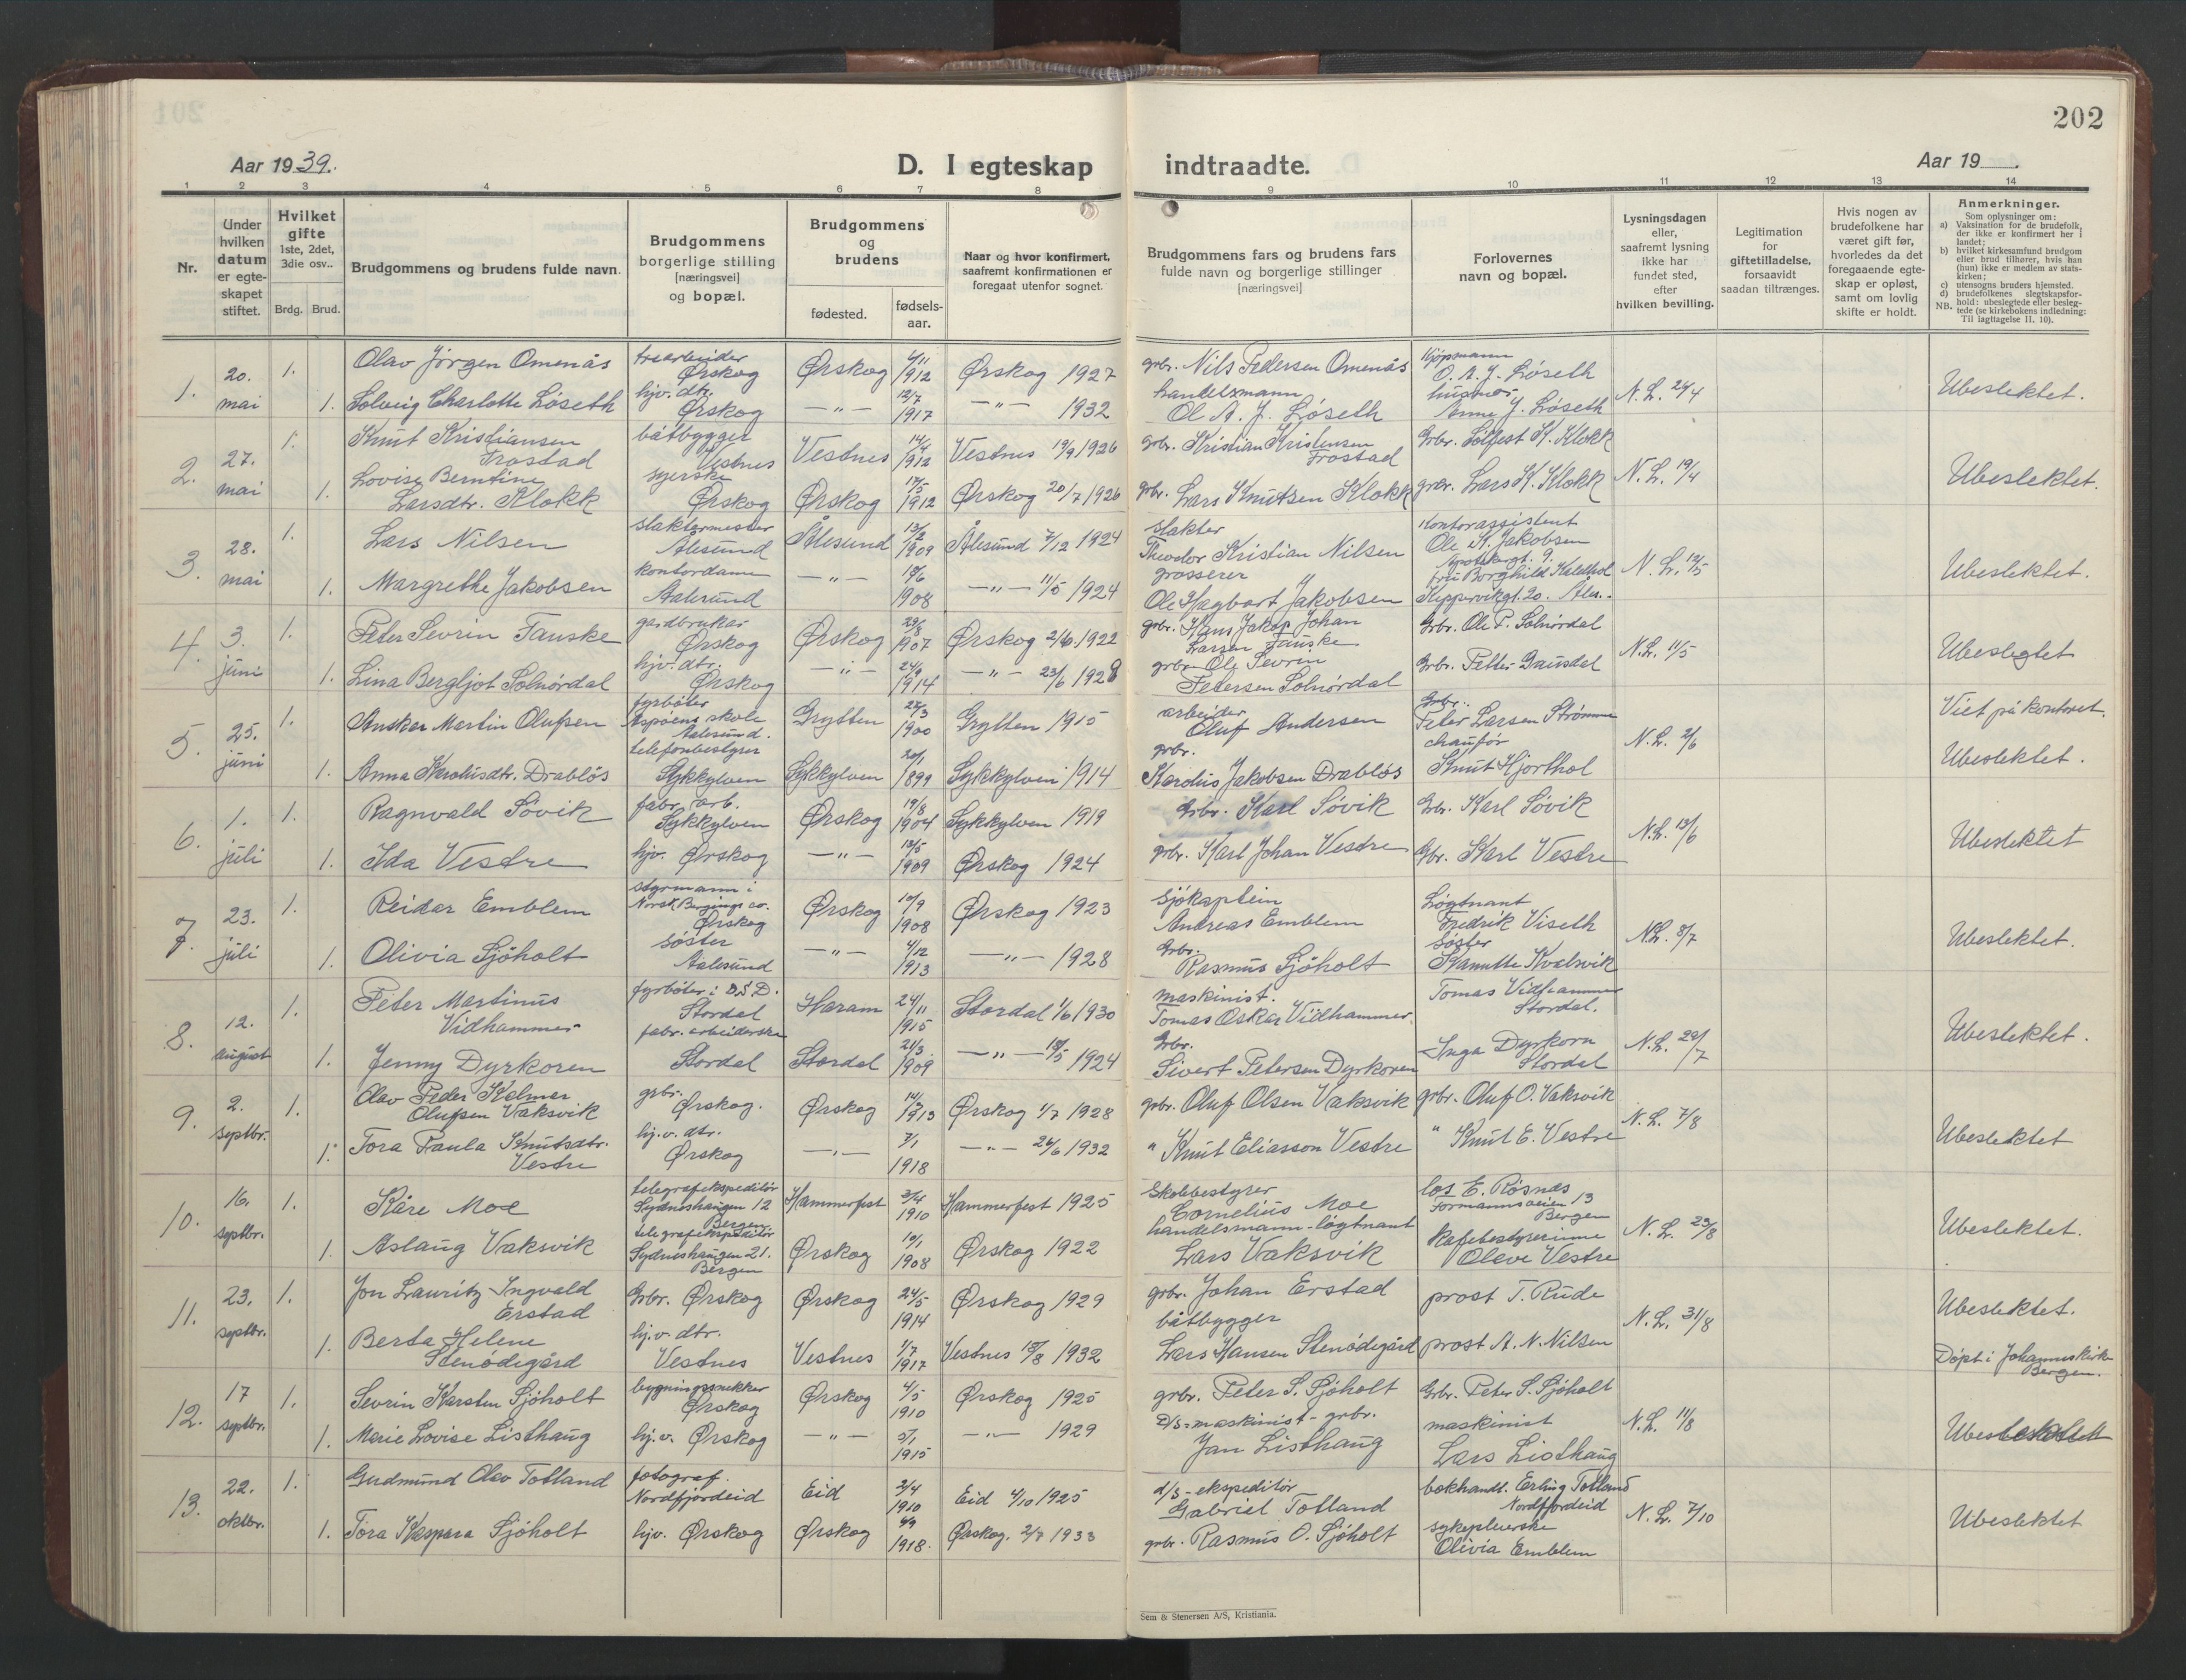 202
Aar 1939.
D. I egteskap indtraadte.
Aar 19
1 2 3 4 5 6 7 8 9 10 11 12 13 14
Nr.
Under hvilken datum er egteskapet stiftet.
Hvilket gifte 1ste, 2det, 3die osv..
Brdg. Brud.
Brudgommens og brudens fulde navn.
Brudgommens borgerlige stilling [næringsvei] og bopæl.
Brudgommens og brudens
fødested.
fødsels-aar.
Naar og hvor konfirmert, saafremt konfirmationen er foregaat utenfor sognet.
Brudgommens fars og brudens fars fulde navn og borgerlige stillinger [næringsvei]
Forlovernes navn og bopæl.
Lysningsdagen eller, saafremt lysning ikke har fundet sted, efter hvilken bevilling.
Legitimation for giftetilladelse, forsaavidt saadan tiltrænges.
Hvis nogen av brudefolkene har været gift før, hvorledes da det foregaaende egteskap er opløst, samt om lovlig skifte er holdt.
Anmerkninger.
Som oplysninger om:
a) Vaksination for de brudefolk, der ikke er konfirmert her i landet;
b) hvilket kirkesamfund brudgom eller brud tilhører, hvis han (hun) ikke er medlem av statskirken;
c) utensogns bruders hjemsted.
d) brudefolkenes slegtskapsforhold: ubeslegtede eller beslegtede (se kirkebokens indledning: Til iagttagelse II. 10).
NB.
1. 20. mai 1. Olav Jørgen Omenås træarbeider Ørskog Ørskog 6/11 1912 Ørskog 1927 grbr. Nils Pedersen Omenås Kjøpmann O. A. J. Løseth N.L. 24/4 Ubeslektet.
1. Solveig Charlotte Løseth hjv. dtr. Ørskog —"— 12/7 1917 —"— 1932 handelsmann Ol A. J. Løseth Anne J. Løseth
2. 27. mai 1. Knut Kristiansen Frostad båtbygger Vestnes Vestnes 1912 Vestnes 19/9 1926 grbr. Kristian Kristensen Frostad Grbr. Sølfest K. Klokk N.L. 19/4 Ubeslektet.
1. Lovise Berntine Larsdtr. Klokk syerske Ørskog Ørskog 1912 Ørskog 20/7 1926 grbr. Lars Knutsen Klokk grbr. Lars K. Klokk
3. 28. mai 1. Lars Nilsen slaktermester Ålesund Ålesund 13/2 1909 Ålesund 7/12 1924 slakter Theodor Kristian Nilsen Kontorassistent Ole K. Jakobsen N.L. 12/5 Ubeslektet.
1. Margrethe Jakobsen kontordame Aalesund —"— 1908 —"— 11/5 1924 grosserer Ole Hagbart Jakobsen fru Borghild Kaldhol Kippervikgt. 20. Åles.
4. 3. juni 1. Peter Sevrin Fauske gardbruker Ørskog Ørskog 29/8 1907 Ørskog 2/6 1922 grbr. Hans Jakop Johan Larsen Fauske Grbr. Ole P. Solnørdal N.L. 11/5 Ubeslegtet
1. Lina Bergljot Solnørdal hjv. dtr. Ørskog —"— 1914 —"— 23/6 1928 grbr Ole Sevrin Petersen Solnørdal Grbr. Petter Gausdal
5. 25. juni 1. Ansker Martin Olufsen fyrbøter Aspøens skole Aalesund. Grytten 27/3 1900 Grytten 1915 arbeider Oluf Andersen Grbr. Peter Larsen Strømme N.L. 2/6 Viet på kontoret. Ubeslektet.
1. Anna Karolusdtr. Drabløs telefonbestyrer Sykkylven Sykkylven 20/1 1899 Sykkylven 1914 grbr. Karolus Jakobsen Drabløs chaufør Knut Hjorthol
6. 1. juli 1. Ragnvald Søvik fabr. arb. Sykkylven Ørskog 19/8 1904 Sykkylven 1919 Grbr. Karl Søvik Grbr. Karl Søvik N.L. 13/6 Ubeslektet
1. Ida Vestre hjv. Ørskog —"— 1909 Ørskog 1924 grbr. Karl Johan Vestre Gbr. Karl Vestre
7. 23. juli 1. Reidar Emblem styrmann i Norsk Bergings co. Ørskog Ørskog 10/9 1908 Ørskog 1923 Sjøkaptein Andreas Emblem Løgtnant Fredrik Viseth N.L. 8/7 Ubeslektet.
1. Olivia Sjøholt søster Aalesund —"— 4/12 1913 —"— 1928 Grbr. Rasmus Sjøholt Søster Kanutte Kvalsvik
8. 12. august 1. Peter Martinus Vidhammer fyrbøter i D.S.D. Stordal Haram 24/11 1915 Stordal 1/6 1930 maskinist. Tomas Oskar Vidhammer. Tomas Vidhammer Stordal. N.L. 29/7 Ubeslektet.
1. Jenny Dyrkoren fabr. arbeiderske Stordal Stordal 21/3 1909 —"— 18/5 1924 Grbr. Sivert Petersen Dyrkoren Inga Dyrkorn Stordal
9. 2. septbr. 1. Olav Peder Kalmar Olufsen Vaksvik grbr. Ørskog. Ørskog 1913 Ørskog 1/7 1928 grbr. Oluf Olsen Vaksvik grbr. Oluf O. Vaksvik N.L. 7/8 Ubeslektet
1. Tora Paula Knutsdtr. Vestre hj.v. dtr. Ørskog —"— 1918 —"— 26/6 1932 " Knut Eliasson Vestre " Knut E. Vestre
10. 16. septbr. 1. Kåre Moe telegrafekspeditør Sydneshaugen 12 Bergen. Hammerfest 3/4 1910 Hammerfest 1925 Skolebestyrer Cornelius Moe los E. Røsnæs Formannsveien 13 Bergen N.L. 23/8 Ubeslektet.
1. Aslaug Vaksvik telegrafekspeditør Sydneshaugen 21. Bergen Ørskog 10/1 1908 Ørskog 1922 handelsmann-løgtnant Lars Vaksvik Kafebestyrerinne Oleve Vestre
11. 23. septbr. 1. Jon Lauritz Ingvald Erstad Grbr. Ørskog Ørskog 24/5 1914 Ørskog 1929 grbr. Johan Erstad prost T. Rude N.L. 31/8 Ubeslektet.
1. Berta Helene Stenødegård hj.v. dtr. Vestnes Vestnes 1/7 1917 Vestnes 18/8 1932 båtbygger Lars Hansen Stenødegård prost A. N. Nilsen
Døpt i Johanneskirke Bergen.
12. 17 septbr. 1. Sevrin Karsten Sjøholt bygningssnekker Ørskog Ørskog 4/5 1910 Ørskog 1925 grbr. Peter S. Sjøholt Grbr. Peter S. Sjøholt N.L. 11/8
1. Marie Lovise Listhaug hj.v. Ørskog —"— 1915 —"— 1929 D/S-maskinist-grbr. Jan Listhaug maskinist Lars Listhaug
13. 22. oktbr. 1. Gudmund Olav Totland fotograf. Nordfjordeid Eid 2/4 1910 Eid 4/10 1925 d/s-ekspeditør Gabriel Totland bokhandl. Erling Totland Nordfjordeid N.L. 7/10 Ubeslektet
1. Tora Kaspara Sjøholt hjv. Ørskog Ørskog 1918. Ørskog. 2/7 1933 grbr. Rasmus O. Sjøholt sykepleierske Olivia Emblem
Sem & Stenersen A/S, Kristiania.